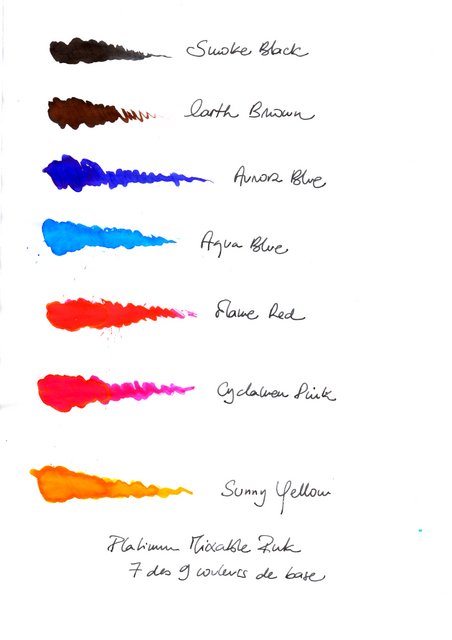 Smoke Black
Earth Brown
Aurora Blue
Aqua Blue
Flame Red
Cyclamen Pink
Sunny Yellow
Platinum Mixable Ink
7 des 9 couleurs de base